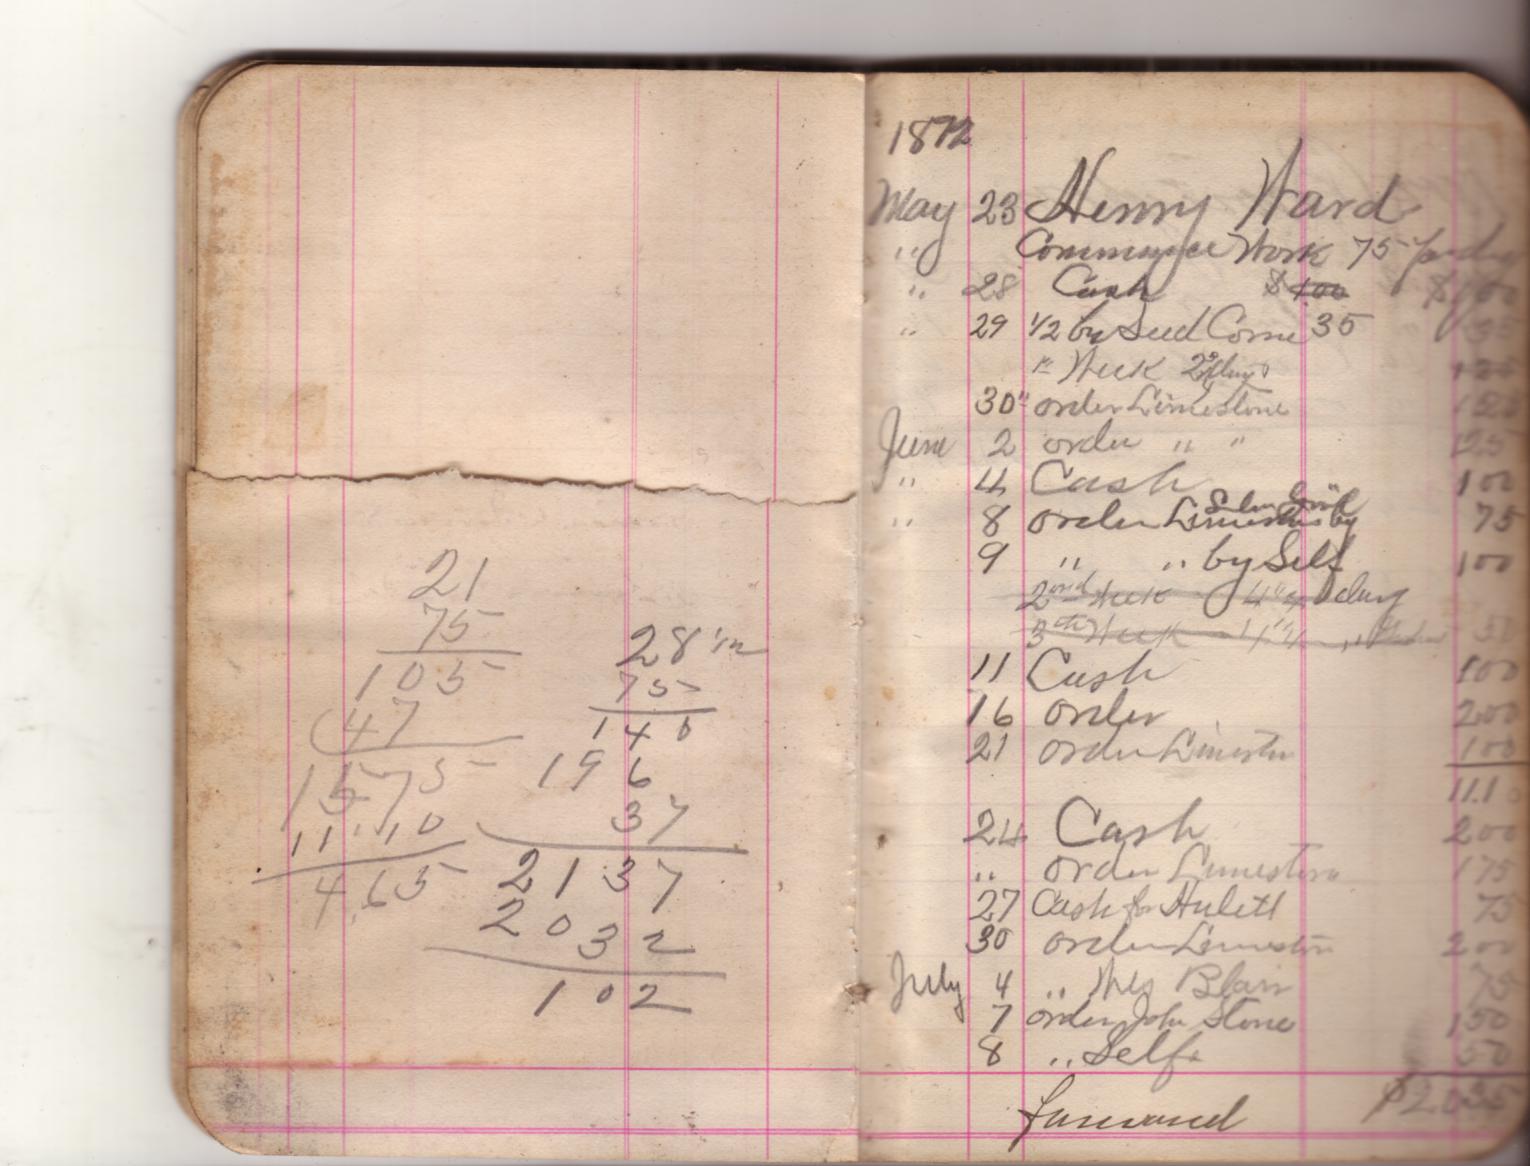 21
75
105
147
1575
11.10
4.65
28 1/2
75
140
196
37
2137
2032
102
1872
May 23 Henry Ward
" Commence Work 75 per day
" 28 Cash $1.00 $100
" 29 1/2 by Seed Corn 35 35
Week days
30 order Limestone
June 2 order " " 125
" 4 Cash 100
" 8 order by 75
9 " " by Self 100
2nd Week 4 days
3th Week 50
11 Cash 100
16 order 200
21 order Limeston 100
11.10
24 Cash 200
" order Limestone 175
27 Cash for Hulett 75
30 order Limeston 200
July 4 " Blair 75
7 order John Stone 150
8 " Self 50
forward $20.35